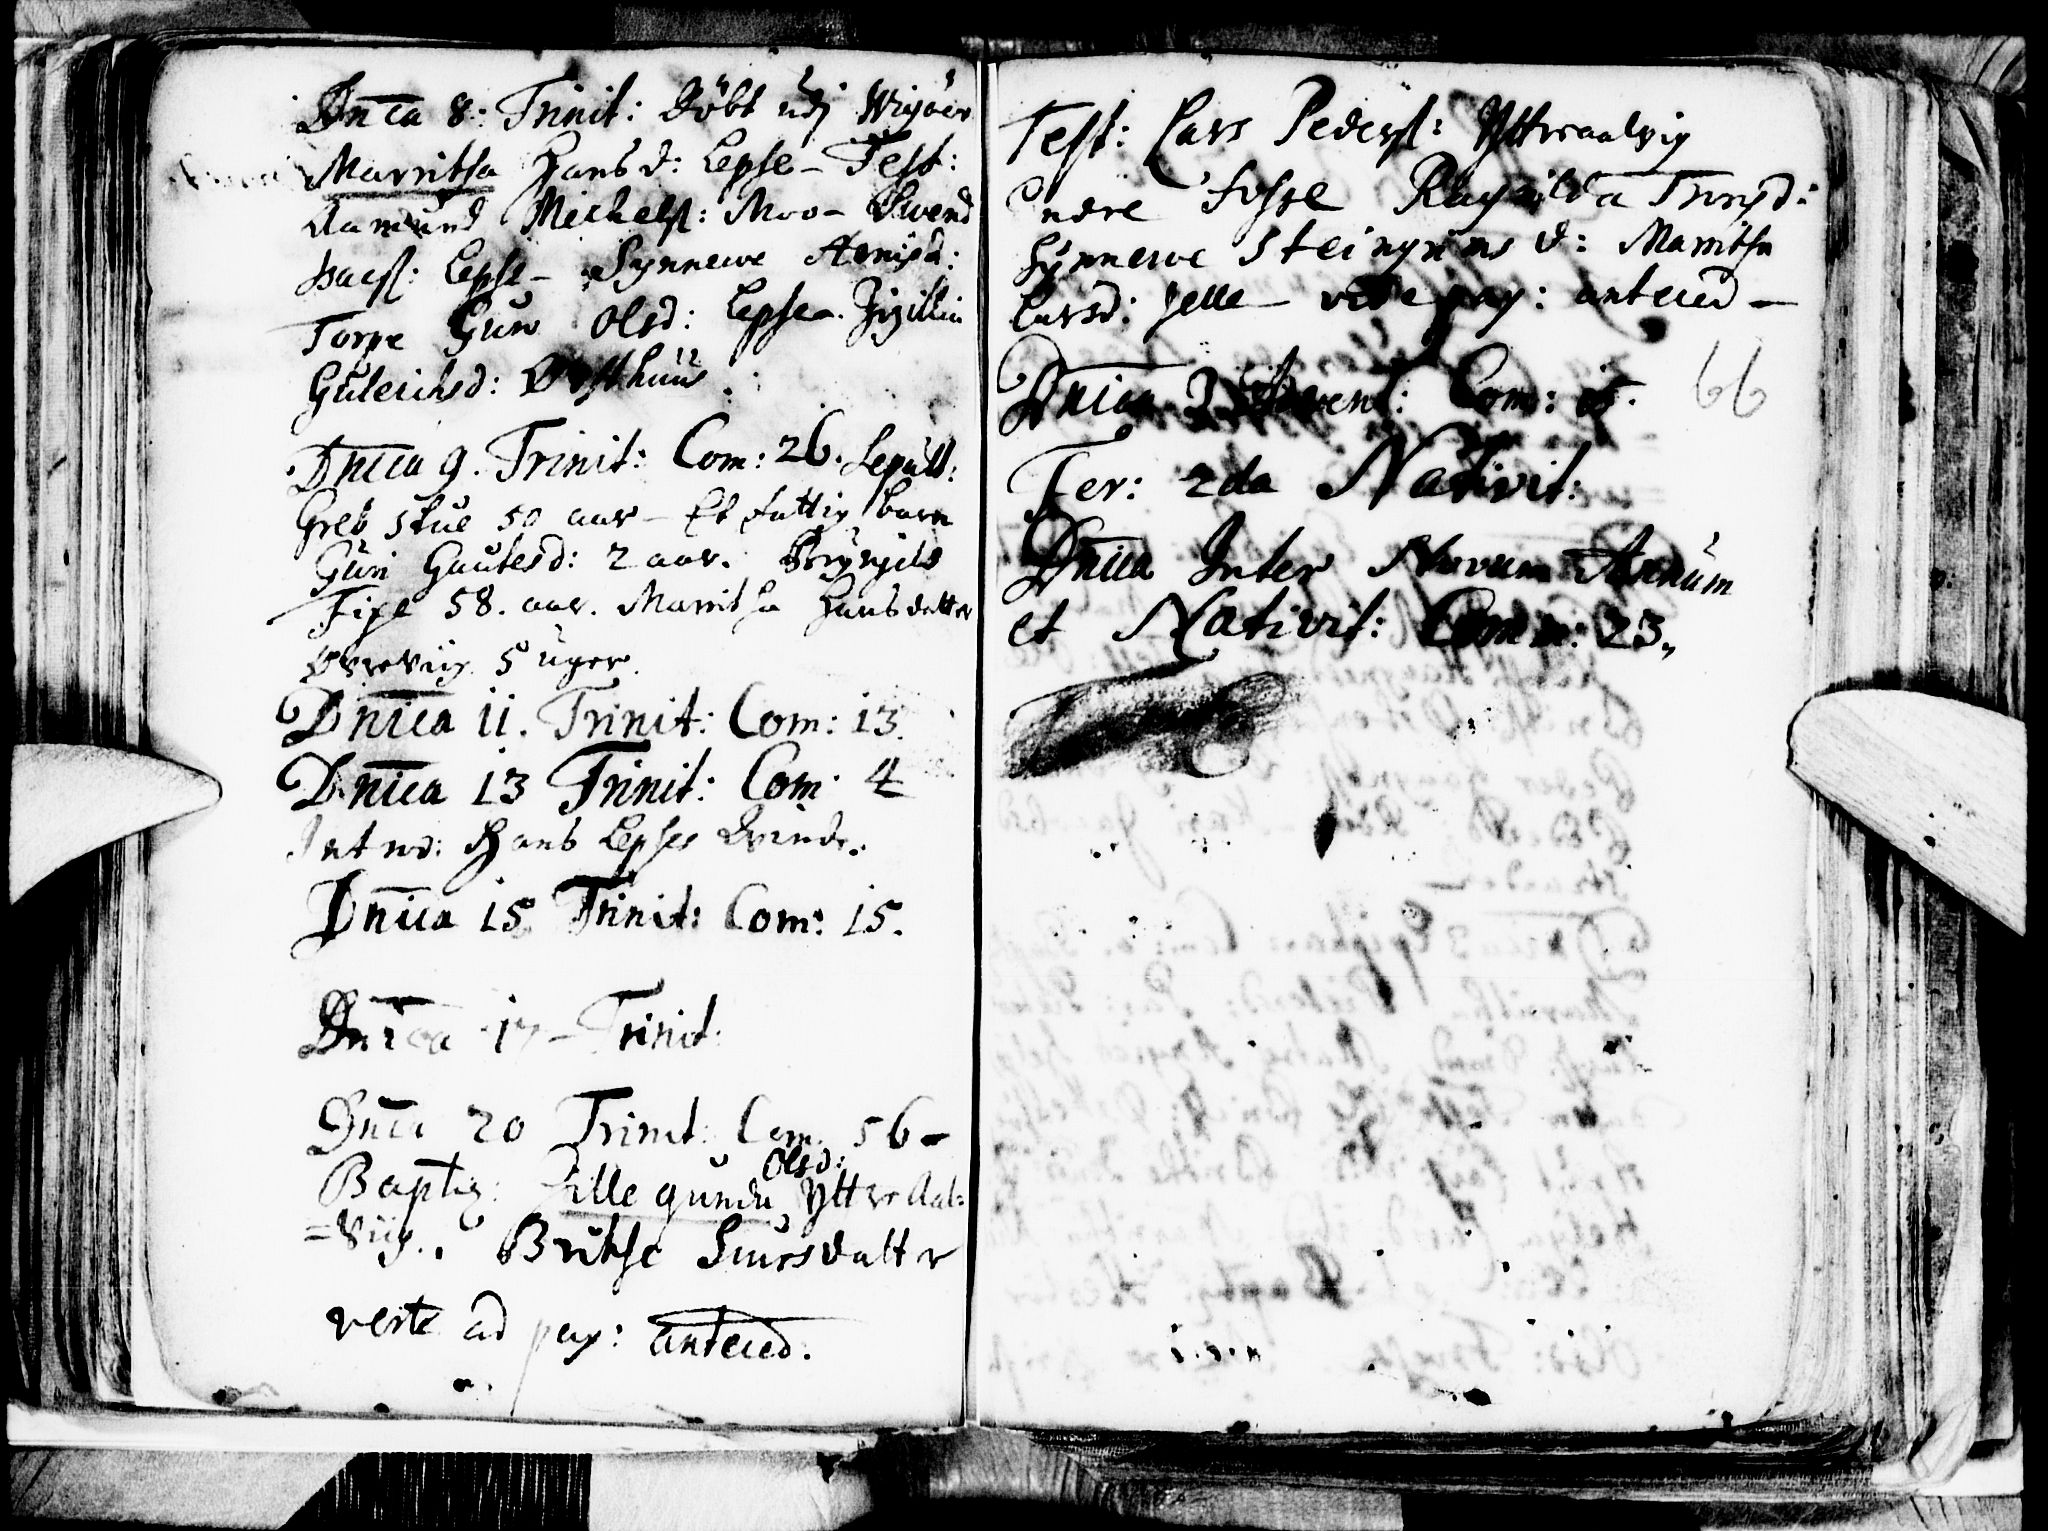 Dnica 8: Trinit: Döbt udj Wigöer
Marritha Hansd: Lepse – Test:
Aamund Michelss: Moo – Svend
Isacss: Lepse – Synnewe
Torpe Guro Olsd: Lepse
Guleichsd: Østhuus.
Dnica 9. Trinit: Com: 26. Sepult:
Gret Stue 50 aar – Et fattig barn
Guri Gautesd: 2 aar. Bryngild
58. aar. Marritha Hansdatter
5 uger.
Dnica 11. Trinit: Com: 13.
Dnica 13 Trinit: Com: 4
Introd: Hans Lepses Qvinde.
Dnica 15 Trinit: Com: 15.
Dnica 17 – Trinit:
Dnica 20 Trinit: Com. 56 –
Olsd:
Baptiz: Sille gunda Yttre Aal:
=Viig. Brithe Siursdatter
verte ad pag: anteced.
Test: Lars Pederss: Yttreaalvig
Endre Fosse Ragnilda
Synnewe Steingrims d: Marritha
Larsd: Helle – vide pag: anteced –
Dnica 3 Advent: Com: 15.
66
Fer: 2da Nativit:
Dnica Inter Novum Annum
et Nativit: Com: 23.